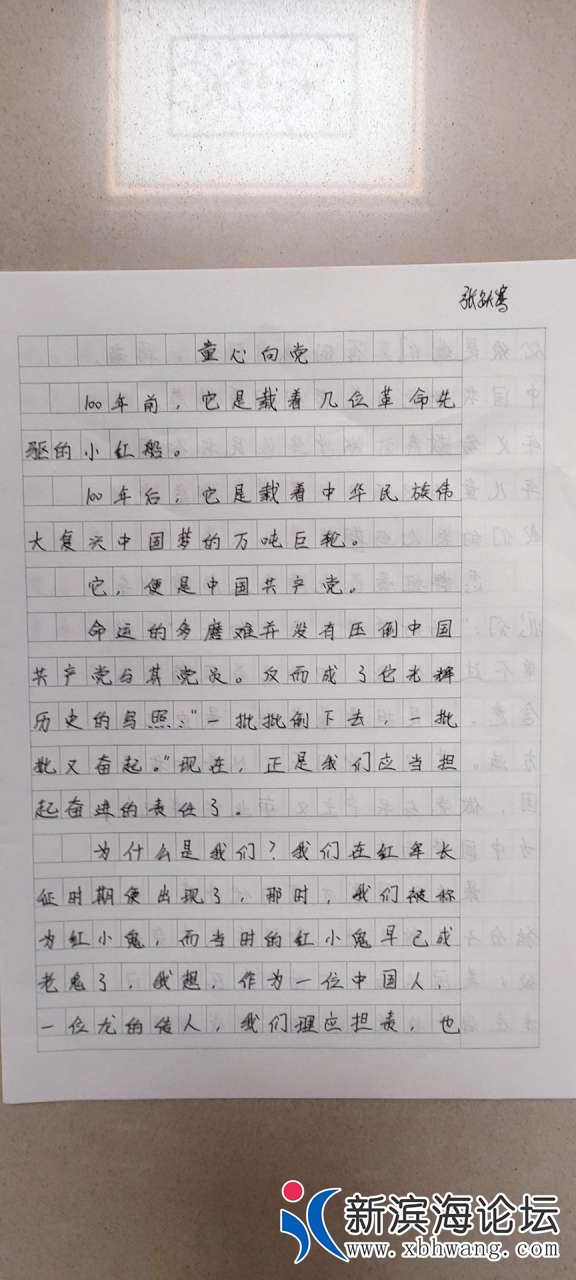 张
童心向党
100年前，它是载着几位革命先
驱的小红船。
100年后，它是载着中华民族伟
大复兴中国梦的万吨巨轮。
它，便是中国共产党。
命运的多磨难并没有压倒中国
共产党与其党员。反而成了它光辉
历史的写照："一批批倒下去，一批
批又奋起。"现在，正是我们应当担
起奋进的责任了。
为什么是我们？我们在红军长
征时期便出现了，那时，我们被称
为红小鬼，而当时的红小鬼早已成
老鬼了，我想，作为一位中国人，
一位龙的传人，我们理应担责，也
新滨海论坛
www.xbhwang.com